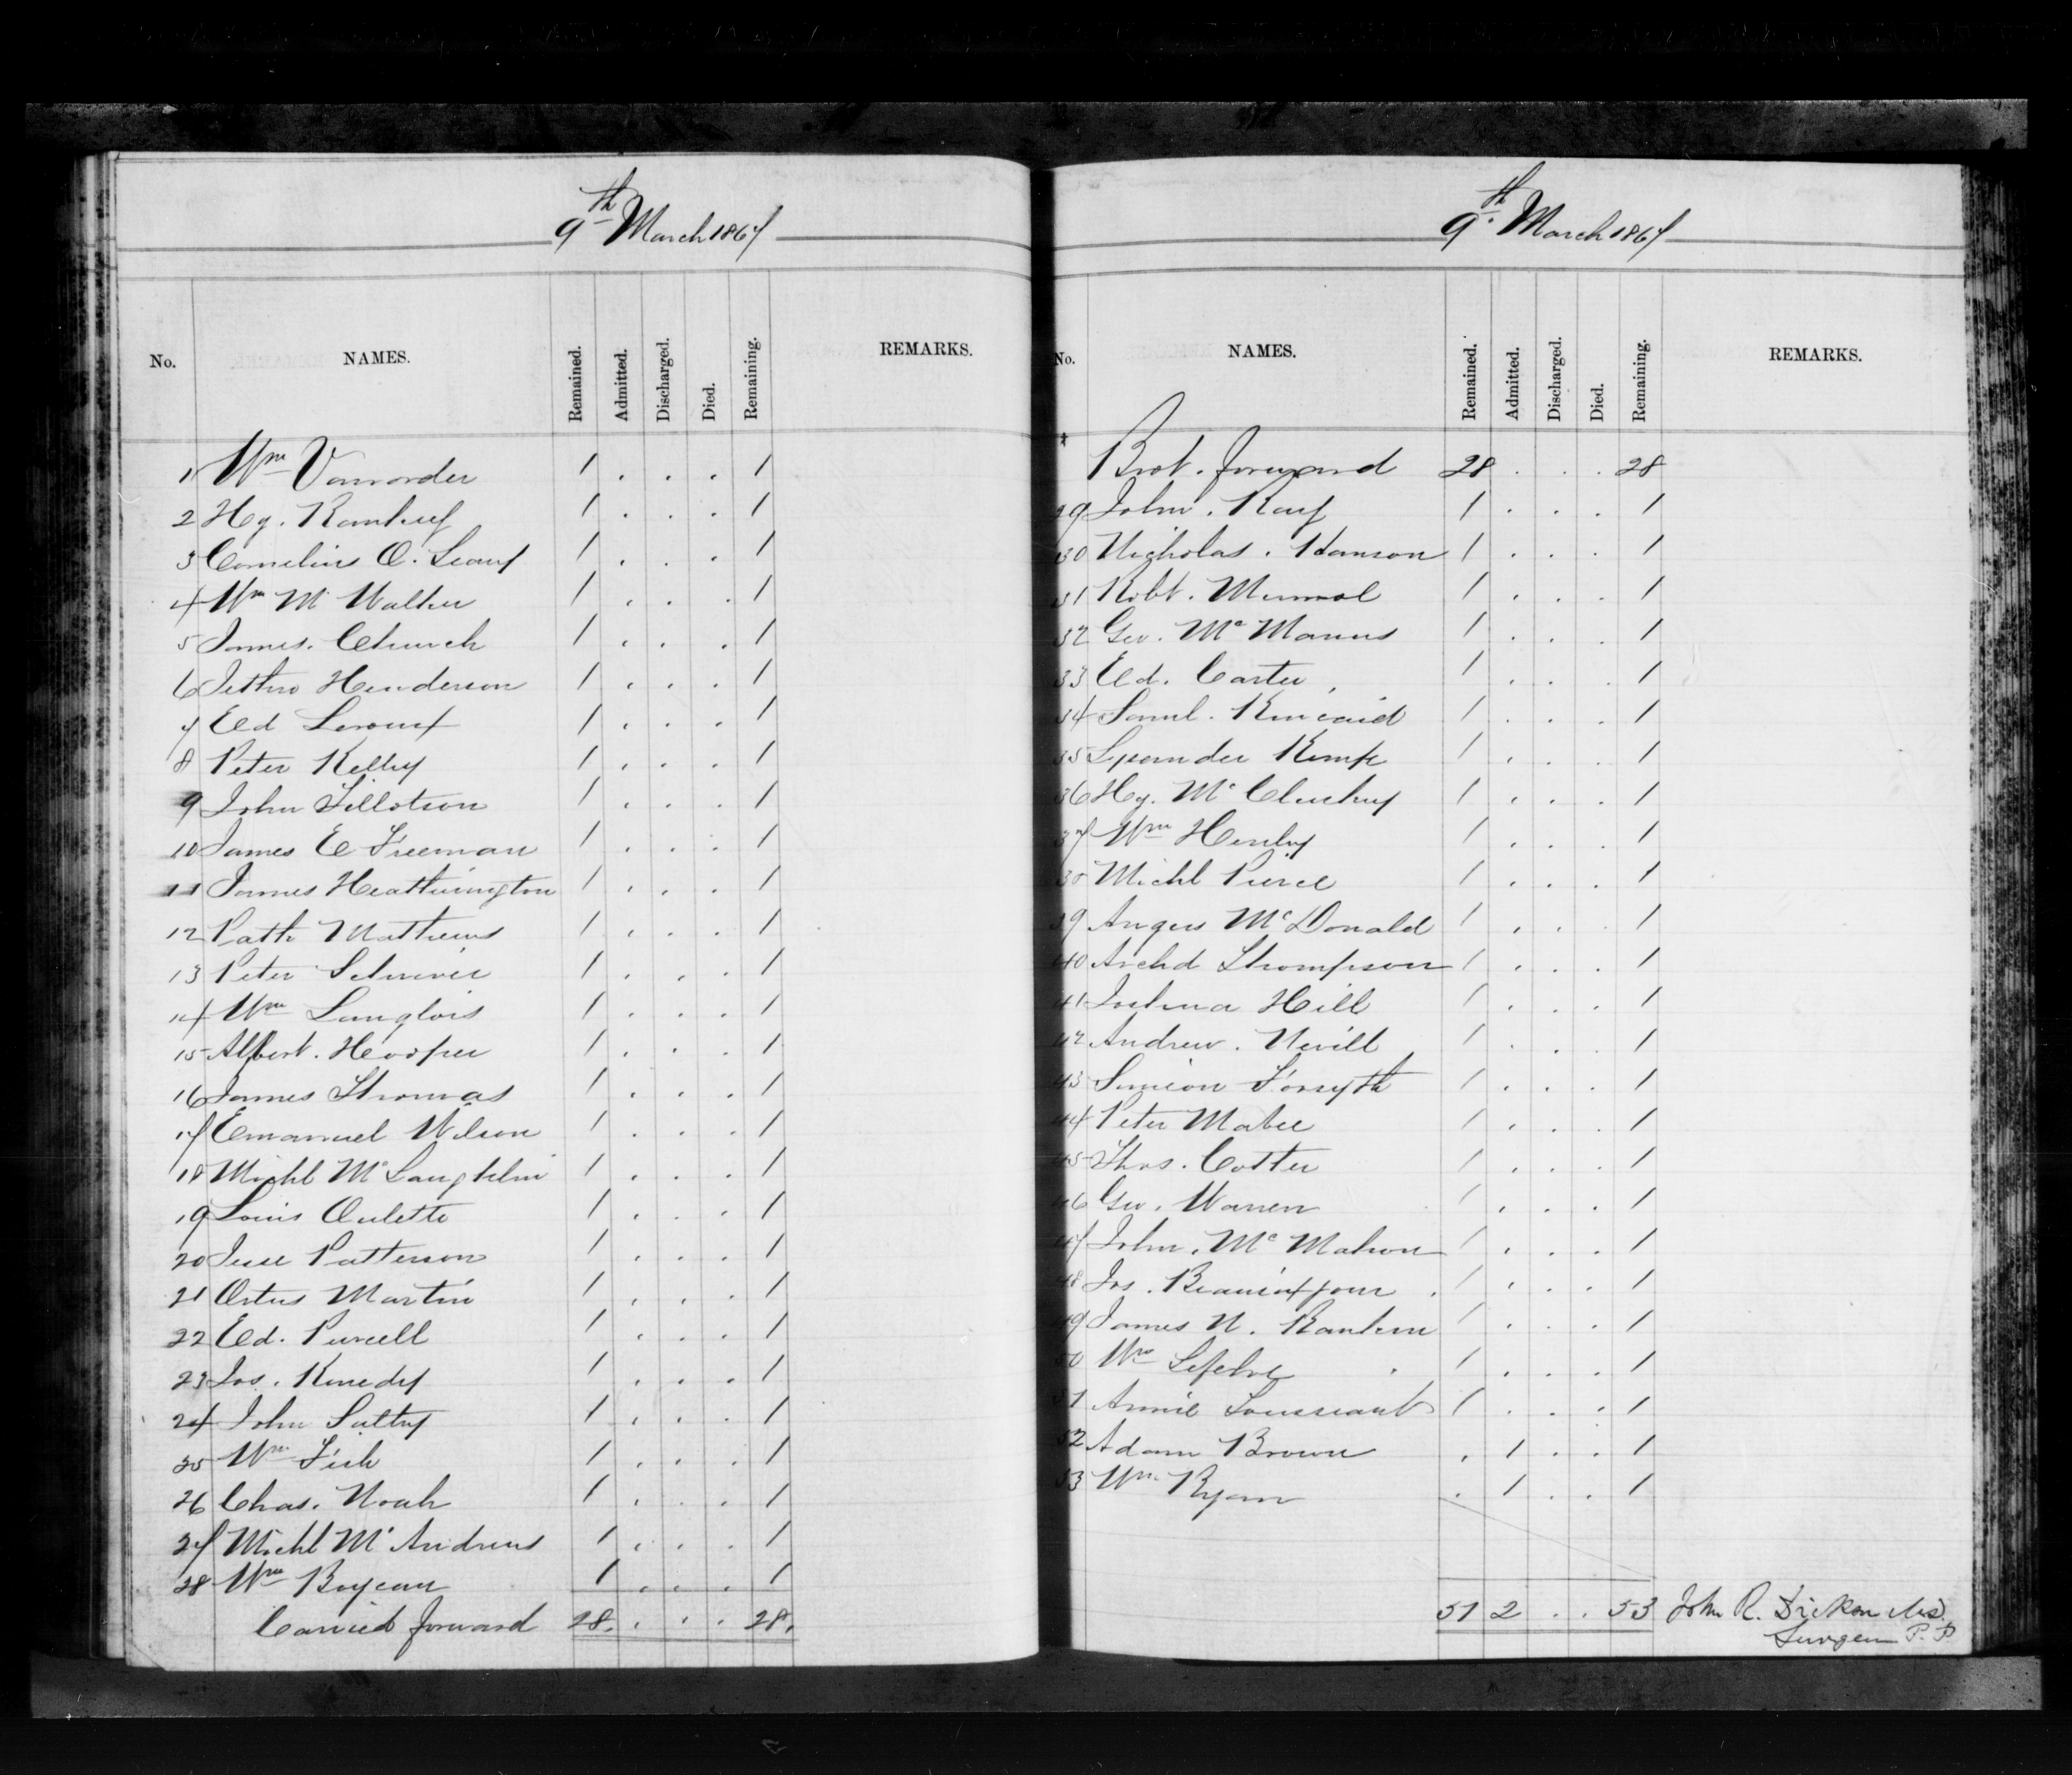 9th March 1867
No. NAMES. Remained. Admitted. Discharged. Died. Remaining. REMARKS.
1 Wm Vanorder 1 . . . 1
2 Hy. 1 . . . 1
3 Cornelius O. Leary 1 . . . 1
4 Wm Mc Walter 1 . . . 1
5 James. Church 1 . . . 1
6 Jethro Henderson 1 . . . 1
7 Ed 1 . . . 1
8 Peter Kelly 1 . . . 1
9 John Tillotson 1 . . . 1
10 James E Freeman 1 . . . 1
11 James Heatherington 1 . . . 1
12 Patk Mathews 1 . . . 1
13 Peter 1 . . . 1
14 Wm Langlois 1 . . . 1
15 Albert. Hooper 1 . . . 1
16 James Thomas 1 . . . 1
17 Emanuel Wilson 1 . . . 1
18 Michl Mc Laughlin 1 . . . 1
19 Louis Oulette 1 . . . 1
20 Jesse Patterson 1 . . . 1
21 Martin 1 . . . 1
22 Ed. Purcell 1 . . . 1
23 Jos. Kenedy 1 . . . 1
24 John 1 . . . 1
25 Wm Fish 1 . . . 1
26 Chas. Noah 1 . . . 1
27 Michl Mc Andrews 1 . . . 1
28 Wm 1 . . . 1
Carried forward 28. . . . 28.
9th March 1867
No. NAMES. Remained. Admitted. Discharged. Died. Remaining. REMARKS.
Brot. forward 28 . . . 28
29 John. Kay 1 . . . 1
30 Nicholas. Hanson 1 . . . 1
31 Robt. 1 . . . 1
32 Geo. Mc Manus 1 . . . 1
33 Ed. Carter 1 . . . 1
34 Saml. Kincaid 1 . . . 1
35 Lysander Kemp 1 . . . 1
36 Hy. Mc Cluskey 1 . . . 1
37 Wm Henley 1 . . . 1
38 Michl Pierce 1 . . . 1
39 Angus McDonald 1 . . . 1
40 Archd Thompson 1 . . . 1
41 Joshua Hill 1 . . . 1
42 Andrew. Nevill 1 . . . 1
43 Simeon Forsyth 1 . . . 1
44 Peter Mabee 1 . . . 1
45 Thos. Cotter 1 . . . 1
46 Geo. Warren 1 . . . 1
47 John. Mc Mahon 1 . . . 1
48 Jos. 1 . . . 1
49 James N. Rankin 1 . . . 1
50 Wm Lefebre 1 . . . 1
51 Annie Tousseant 1 . . . 1
52 Adam Brown . 1 . . 1
53 Wm. Ryan . 1 . . 1
51 2 . . 53 John R. Dickson M.D.
Surgeon P. P